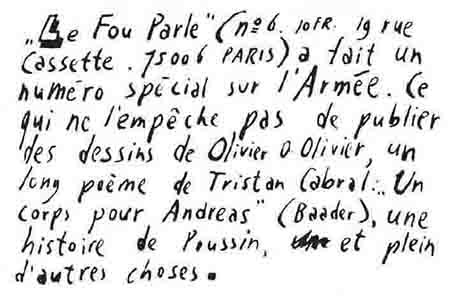 „Le Fou Parle" (nº 6. 10FR. 19 rue
Cassette. 75006 PARIS) a fait un
numéro spécial sur l'Armée. Ce
qui ne l'empêche pas de publier
des dessins de Olivier O Olivier, un
long poème de Tristan Cabral: „Un
corps pour Andreas" (Baader), une
histoire de Poussin, et plein
d'autres choses.